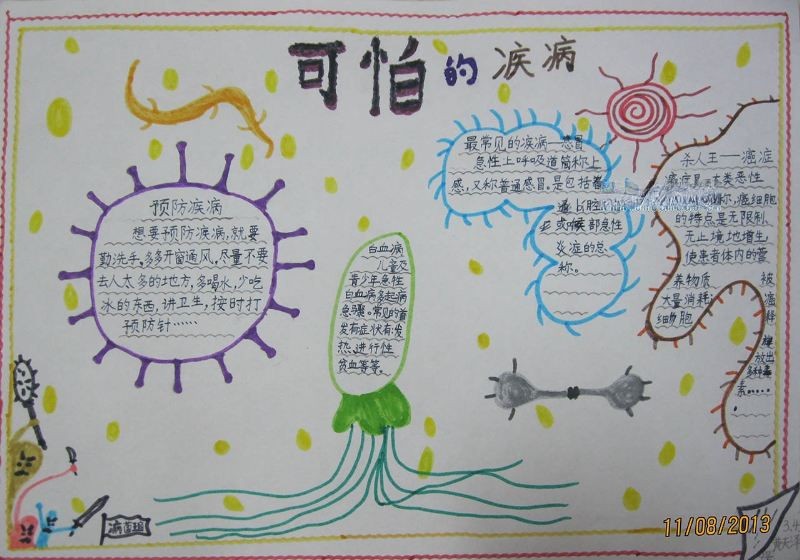 可怕的疾病
预防疾病
想要预防疾病,就要
勤洗手,多多开窗通风,尽量不要
去人太多的地方,多喝水,少吃
冰的东西,讲卫生,按时打
预防针……
白血病
儿童及
青少年急性
白血病多起病
急骤。常见的首
发有症状有:发
热、进行性
贫血等等。
最常见的疾病—感冒
急性上呼吸道简称上
感,又称普通感冒。是包括
道上腔
或喉部急性
炎症的总
称。
杀人王——癌症
癌症是
类恶性
称,癌细胞
的特点是无限制、
无止境地增生,
使患者体内的营
养物质被
大量消耗;癌
细胞释
放出
多种毒
素……
病菌班
3.4
11/08/2013